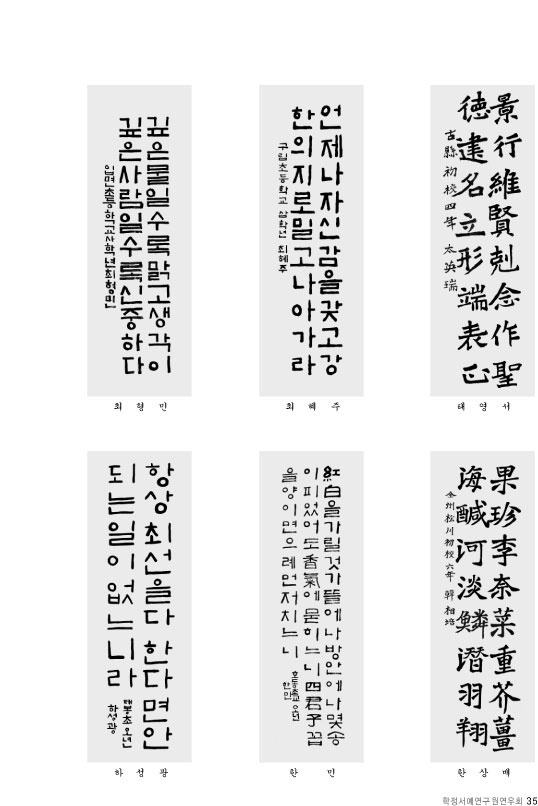 깊은물일수록맑고생각이
깊은사람일수록신중하다
입면초등학교사학년최형민
최형민
언제나자신감을갖고강
한의지로밀고나아가라
구림초등학교 삼학년 최혜주
최혜주
景行維賢剋念作聖
徳建名立形端表正
古縣初校四年 太英瑞
태영서
항상최선을다한다면안
되는일이없느니라
하성광
하성광
紅白을가릴것가뜰에나방안에나몇송
이피었어도香氣에묻히느니四君子꼽
을양이면으레먼저치느니
한민
한민
果珍李奈菜重芥薑
海鹹河淡鱗潛羽翔
全州松川初校六年 韓相培
한상배
학정서예연구원연우회 35